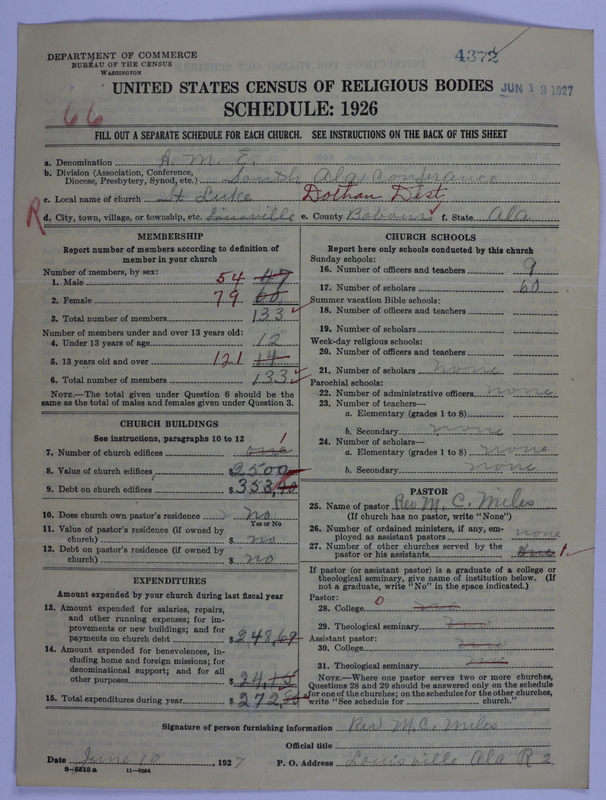 DEPARTMENT OF COMMERCE
BUREAU OF THE CENSUS
WASHINGTON
4372
UNITED STATES CENSUS OF RELIGIOUS BODIES
JUN 13 1927
SCHEDULE: 1926
66
FILL OUT A SEPARATE SCHEDULE FOR EACH CHURCH. SEE INSTRUCTIONS ON THE BACK OF THIS SHEET
a. Denomination A. M. E.
b. Division (Association, Conference,
Diocese, Presbytery, Synod, etc.) South Ala Conferance
c. Local name of church St Luke Dothan Dist
R d. City, town, village, or township, etc. Louisville e. County Babour f. State Ala
MEMBERSHIP
Report number of members according to definition of
member in your church
Number of members, by sex:
1. Male 54 47
2. Female 79 60
3. Total number of members 133
Number of members under and over 13 years old:
4. Under 13 years of age 12
5. 13 years old and over 121 14
6. Total number of members 133
NOTE.—The total given under Question 6 should be the
same as the total of males and females given under Question 3.
CHURCH BUILDINGS
See instructions, paragraphs 10 to 12
7. Number of church edifices one 1
8. Value of church edifices $ 2500
9. Debt on church edifices $ 353,40
10. Does church own pastor's residence No
Yes or No
11. Value of pastor's residence (if owned by
church) $ no
12. Debt on pastor's residence (if owned by
church) $ no
EXPENDITURES
Amount expended by your church during last fiscal year
13. Amount expended for salaries, repairs,
and other running expenses; for im-
provements or new buildings; and for
payments on church debt $ 248,69
14. Amount expended for benevolences, in-
cluding home and foreign missions; for
denominational support; and for all
other purposes $ 24,
15. Total expenditures during year $ 272,
CHURCH SCHOOLS
Report here only schools conducted by this church
Sunday schools:
16. Number of officers and teachers 9
17. Number of scholars 60
Summer vacation Bible schools:
18. Number of officers and teachers
19. Number of scholars
Week-day religious schools:
20. Number of officers and teachers
21. Number of scholars none
Parochial schools:
22. Number of administrative officers none
23. Number of teachers—
a. Elementary (grades 1 to 8)
b. Secondary none
24. Number of scholars—
a. Elementary (grades 1 to 8) none
b. Secondary none
PASTOR
25. Name of pastor Rev M. C. Miles
(If church has no pastor, write "None")
26. Number of ordained ministers, if any, em-
ployed as assistant pastors none
27. Number of other churches served by the
pastor or his assistants one 1
If pastor (or assistant pastor) is a graduate of a college or
theological seminary, give name of institution below. (If
not a graduate, write "No" in the space indicated.)
Pastor:
28. College 0 no
29. Theological seminary no
Assistant pastor:
30. College no
31. Theological seminary no
NOTE.—Where one pastor serves two or more churches,
Questions 28 and 29 should be answered only on the schedule
for one of the churches; on the schedules for the other churches,
write "See schedule for church."
Signature of person furnishing information Rev M.C. Miles
Official title
Date June 10, 1927 P. O. Address Louisville Ala R 2
8—5516 a 11—6064